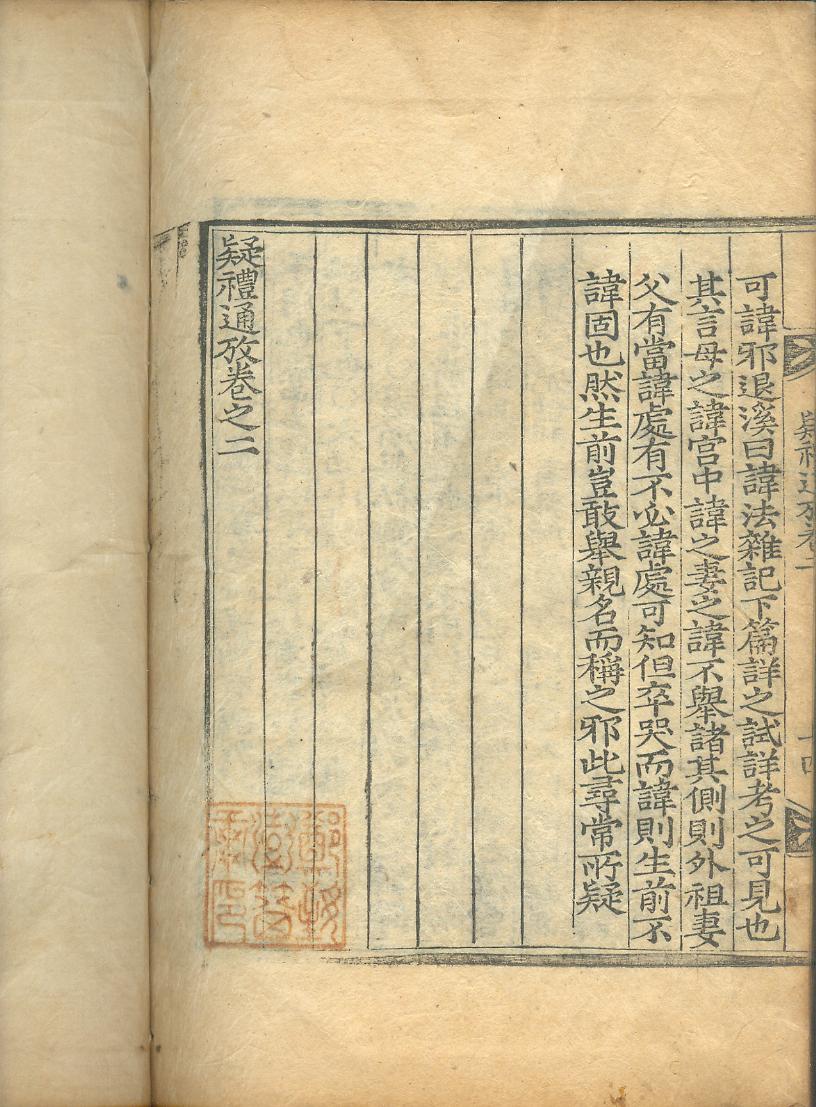 可諱邪退溪曰諱法雜記下篇詳之試詳考之可見也
其言母之諱宮中諱之妻之諱不舉諸其側則外祖妻
父有當諱處有不必諱處可知但卒哭而諱則生前不
諱固也然生前豈敢舉親名而稱之邪此尋常所疑
疑禮通攷卷之二